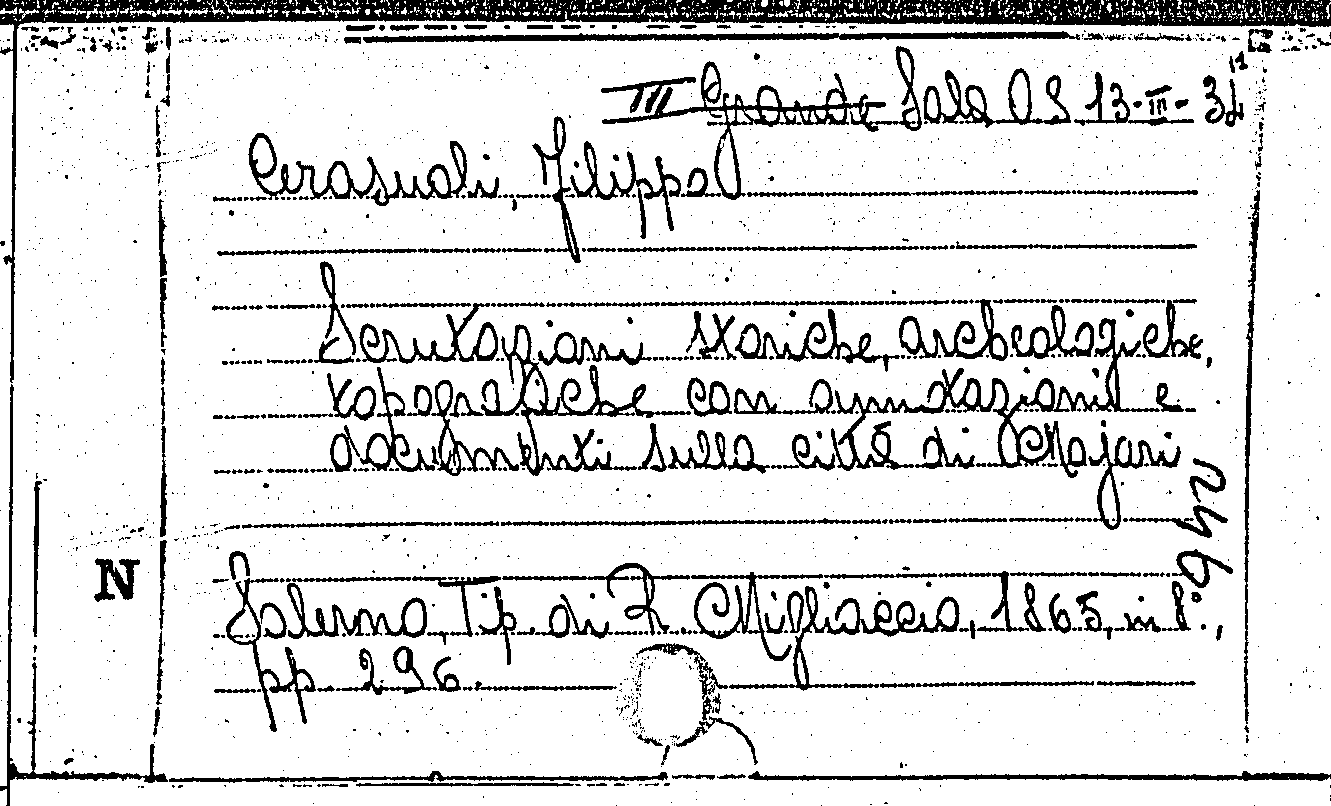 III Grande Sala O S. 13-III-31
Cerasuoli, Filippo
Scrutazioni storiche, archeologiche,
topografiche con annotazioni e
documenti sulla città di Majori
246
N
Salerno, Tip. di R. Migliaccio, 1865, in 8°.,
pp. 296.